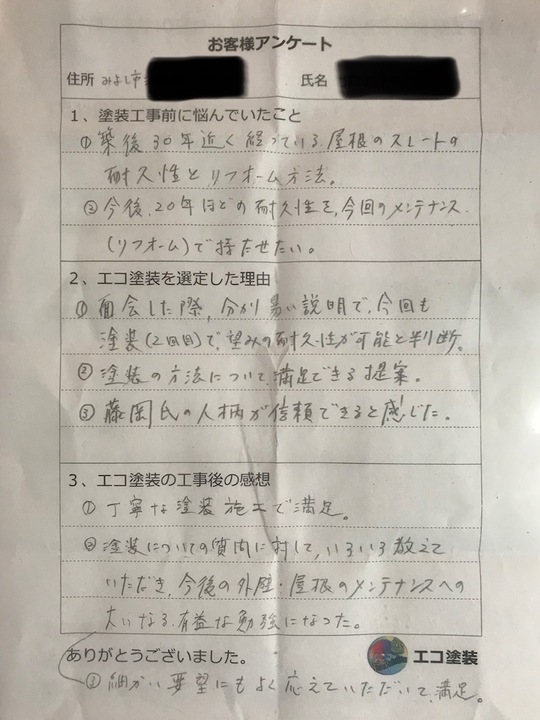 お客様アンケート
住所 みよし市 氏名
1、塗装工事前に悩んでいたこと
① 築後30年近く経っている、屋根のスレートの
耐久性とリフォーム方法。
② 今後、20年ほどの耐久性を、今回のメンテナンス
(リフォーム)で持たせたい。
2、エコ塗装を選定した理由
① 面会した際、分かり易い説明で、今回も
塗装(2回目)で、望みの耐久性が可能と判断。
② 塗装の方法について、満足できる提案。
③ 藤岡氏の人柄が信頼できると感じた。
3、エコ塗装の工事後の感想
① 丁寧な塗装施工で満足。
② 塗装についての質問に対して、いろいろ教えて
いただき、今後の外壁・屋根のメンテナンスへの
大いなる、有益な勉強になった。
ありがとうございました。
エコ塗装
③ 細かい要望にもよく応えていただいて、満足。